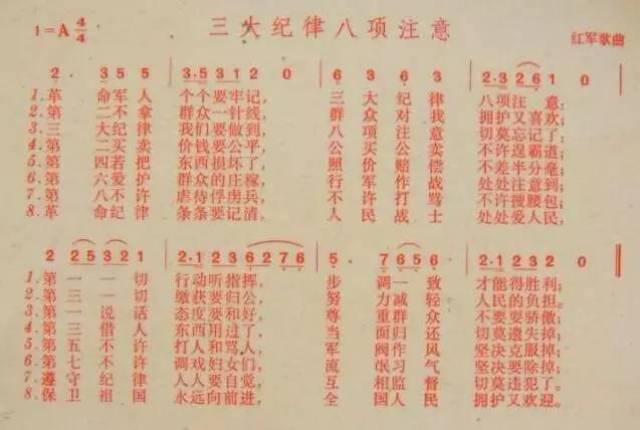 三大纪律八项注意
1=A 4/4
红军歌曲
2 3 5 5 3·5 3 1 2 0 3 5 5 5 2·3 2 6 1 0
1.革命军人个个要牢记,三大纪律八项注意;
2.第二不拿群众一针线,群众对我拥护又喜欢;
3.三大纪律我们要做到,八项注意切莫忘记了;
4.第二买卖价钱要公平,公买公卖不许逞霸道;
5.第四若把东西损坏了,照价赔偿不差半分毫;
6.第六爱护群众的庄稼,行军作战处处注意到;
7.第八不许虐待俘虏兵,不许打骂不许搜腰包;
8.革命纪律条条要记清,人民战士处处爱人民;
2 2 5 3 2 1 2·1 2 3 6 2 7 6 5 7 6 5 6 2·1 2 3 1 0
1.第一一切行动听指挥,步调一致才能得胜利;
2.第三一切缴获要归公,努力减轻人民的负担。
3.第一说话态度要和好,尊重群众不要耍骄傲;
4.第三借人东西用过了,当面归还切莫遗失掉;
5.第五不许打人和骂人,军阀作风坚决克服掉;
6.第七不许调戏妇女们,流氓习气坚决要除掉;
7.遵守纪律人人要自觉,互相监督切莫要违犯;
8.保卫祖国永远向前进,全国人民拥护又欢迎。